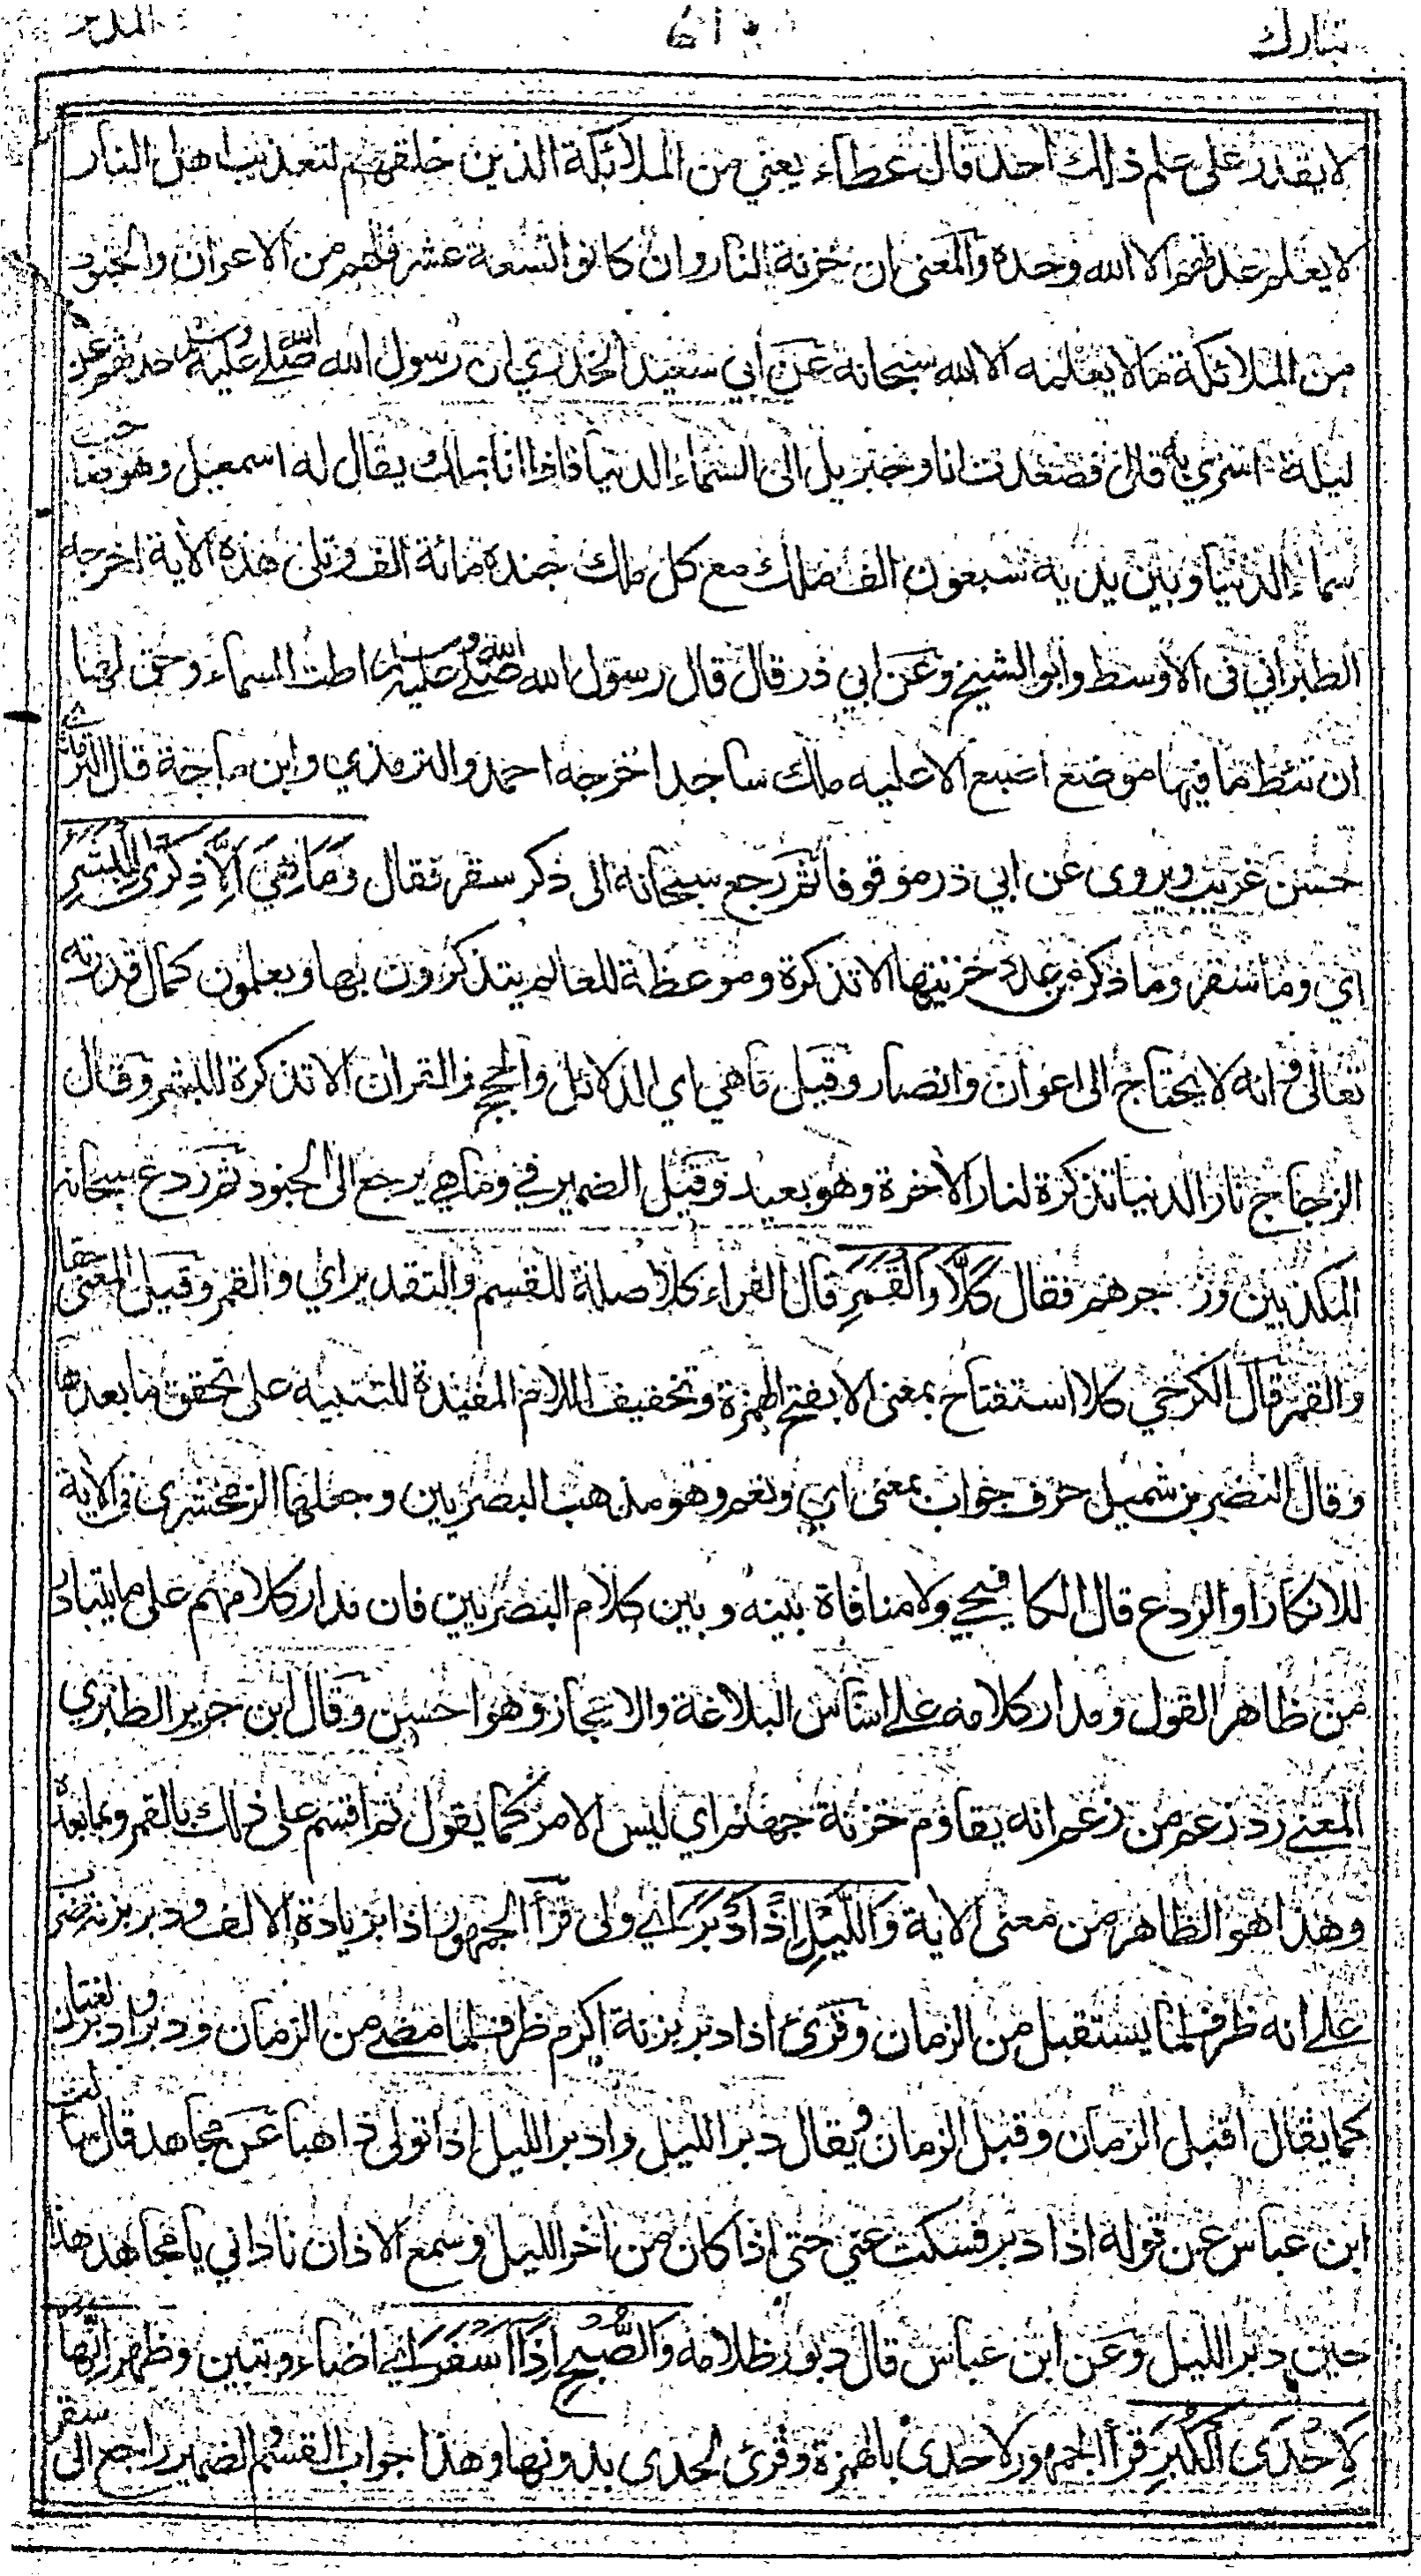 تبارك ٦١٠ المدثر
لا يقدر على علم ذلك احد قال عطاء يعني من الملائكة الذين خلقهم لتعذيب اهل النار
لا يعلم عدتهم الا الله وحده والمعنى ان خزنة النار وان كانوا تسعة عشر فلهم من الاعوان والجنود
من الملائكة ما لا يعلمه الا الله سبحانه عن ابي سعيد الخدري ان رسول الله صلى الله عليه وسلم حدثهم عن
ليلة اسري به قال فصعدت انا وجبريل الى السماء الدنيا فاذا انا بملك يقال له اسمعيل وهو صاحب
سماء الدنيا وبين يديه سبعون الف ملك مع كل ملك جنده مائة الف وتلى هذه الآية اخرجه
الطبراني في الاوسط وابو الشيخ وعن ابي ذر قال قال رسول الله صلى الله عليه وسلم اطت السماء وحق لها
ان تئط ما فيها موضع اصبع الا عليه ملك ساجد اخرجه احمد والترمذي وابن ماجة قال الترمذي
حسن غريب ويروى عن ابي ذر موقوفا ثم رجع سبحانه الى ذكر سقر فقال وَمَا هِيَ اِلَّا ذِكْرٰى لِلْبَشَرِ
اي وما سقر وما ذكر من عدد خزنتها الا تذكرة وموعظة للعالم يتذكرون بها ويعلمون كمال قدرته
تعالى وانه لا يحتاج الى اعوان وانصار وقيل ما هي اي الدلائل والحجج والقران الا تذكرة للبشر وقال
الزجاج نار الدنيا تذكرة لنار الآخرة وهو بعيد وقيل الضمير في وما هي يرجع الى الجنود ثم ردع سبحانه
المكذبين وزجرهم فقال كَلَّا وَالْقَمَرِ قال الفراء كلا صلة للقسم والتقدير اي والقمر وقيل المعنى حقا
والقمر قال الكرخي كلا استفتاح بمعنى الا بفتح الهمزة وتخفيف اللام المفيدة للتنبيه على تحقق ما بعدها
وقال النضر بن شميل حرف جواب بمعنى اي ونعم وهو مذهب البصريين وجعلها الزمخشري في الآية
للانكار او الردع قال الكافيجي ولا منافاة بينه وبين كلام البصريين فان مدار كلامهم على ما يتبادر
من ظاهر القول ومدار كلامه على اساس البلاغة والاعجاز وهو احسن وقال ابن جرير الطبري
المعنى رد زعم من زعم انه يقاوم خزنة جهنم اي ليس الامر كما يقول ثم اقسم على ذلك بالقمر وبما بعده
وهذا هو الظاهر من معنى الآية وَاللَّيْلِ اِذَا دَبَرَ اي ولى قرأ الجمهور اذا بزيادة الالف ودبر بزنة ضرب
على انه ظرف لما يستقبل من الزمان وقرئ اذ ادبر بزنة اكرم ظرف لما مضى من الزمان ودبر وادبر لغتان
كما يقال اقبل الزمان وقبل الزمان ويقال دبر الليل وادبر الليل اذا تولى ذاهبا عن مجاهد قال سألت
ابن عباس عن قوله اذا دبر فسكت عني حتى اذا كان من اخر الليل وسمع الاذان ناداني يا مجاهد هذا
حين دبر الليل وعن ابن عباس قال دبور ظلامه وَالصُّبْحِ اِذَا اَسْفَرَ اي اضاء وتبين وظهر اِنَّهَا
لَاِحْدَى الْكُبَرِ قرأ الجمهور لاحدى بالهمزة وقرئ لحدى بدونها وهذا جواب القسم والضمير راجع الى سقر